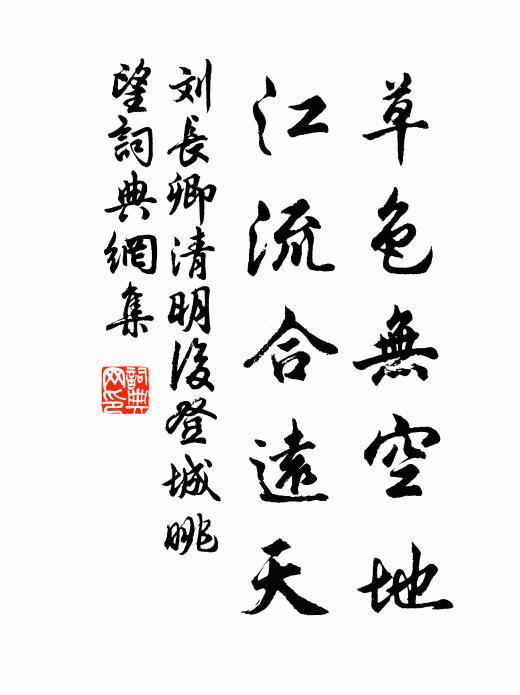 草色無空地
江流合遠天
刘長卿清明後登城眺
望詞典網集
詞典网印